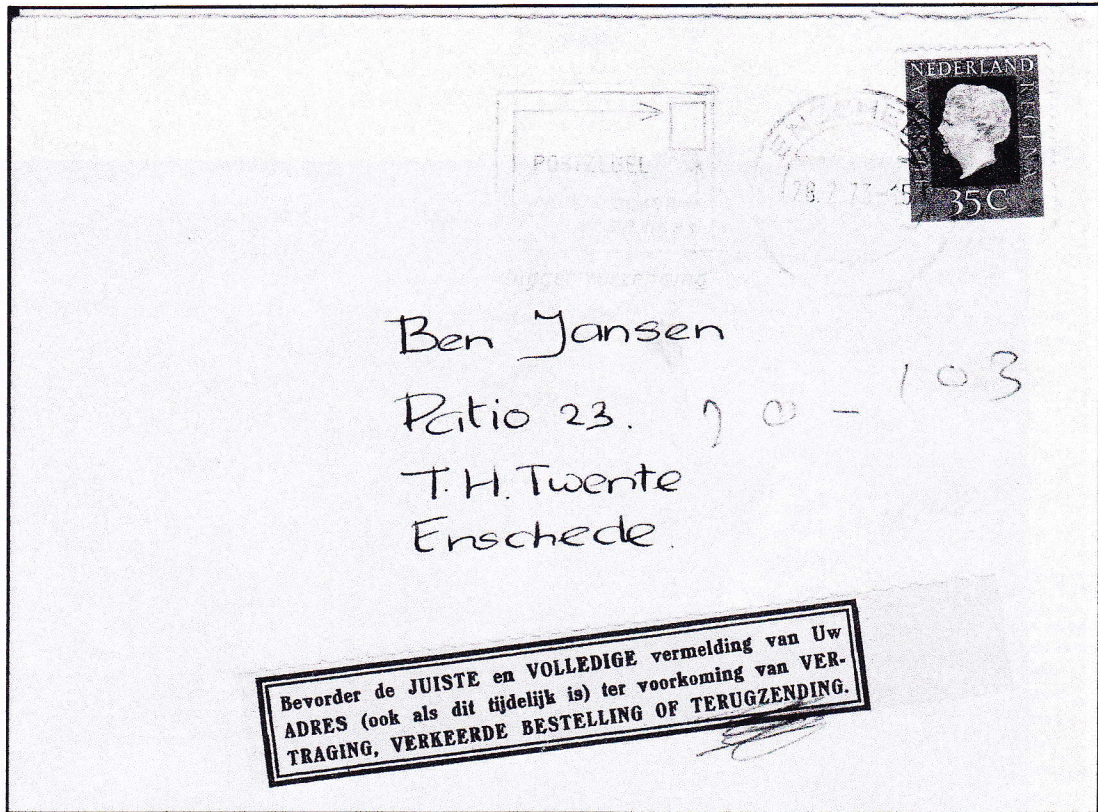 NEDERLAND
JULIANA REGINA
35C
POSTZEGEL
ENSCHEDE
28.2.73-15
Ben Jansen
Patio 23. 10 - 103
T.H. Twente
Enschede.
Bevorder de JUISTE en VOLLEDIGE vermelding van Uw
ADRES (ook als dit tijdelijk is) ter voorkoming van VER-
TRAGING, VERKEERDE BESTELLING OF TERUGZENDING.